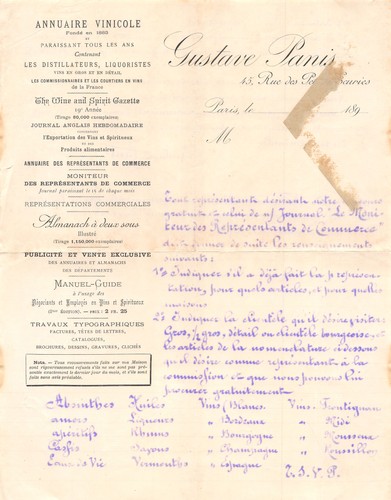 ANNUAIRE VINICOLE
Fondé en 1883
ET
PARAISSANT TOUS LES ANS
Contenant
LES DISTILLATEURS, LIQUORISTES
VINS EN GROS ET EN DÉTAIL
LES COMMISSIONNAIRES ET LES COURTIERS EN VINS
de la France
The Wine and Spirit Gazette
19e Année
JOURNAL ANGLAIS HEBDOMADAIRE
l'Exportation des Vins et Spiritueux
ET DES
Produits alimentaires
ANNUAIRE DES REPRÉSENTANTS DE COMMERCE
MONITEUR
DES REPRÉSENTANTS DE COMMERCE
Journal paraissant le 15 de chaque mois
REPRÉSENTATIONS COMMERCIALES
Almanach à deux sous
Illustré
(Tirage 1,150,000 exemplaires)
PUBLICITÉ ET VENTE EXCLUSIVE
DES ANNUAIRES ET ALMANACHS
DES DÉPARTEMENTS
MANUEL-GUIDE
à l'usage des
Négociants et Employés en Vins et Spiritueux
PRIX : 2 FR. 25
TRAVAUX TYPOGRAPHIQUES
FACTURES, TÊTES DE LETTRES,
CATALOGUES,
BROCHURES, DESSINS, GRAVURES, CLICHÉS
Nota. — Tous renseignements faits sur ma Maison
sont rigoureusement refusés s'ils ne me sont pas présentés
Gustave Panis
45, Rue des Pe
Paris, le 189
M
Tout représentant désirant notre
gratuit et celui de n/ Journal "Le Moni-
teur des Représentants de Commerce"
de suite les renseignements
suivants:
1° Indiquer s'il a déjà fait la représen-
tation, pour quels articles, et pour quelles
maisons
2° Indiquer la clientèle qu'il désire visiter
Gros, ½ gros, détail ou clientèle bourgeoise, et
les articles de la nomenclature ci-dessous
qu'il désire comme représentant à la
commission et que nous pouvons lui
procurer gratuitement
Absinthes Huiles Vins Blancs Vins Frontignan
amers Liqueurs " Bordeaux " Midi
apéritifs Rhums " Bourgogne " Mousseux
Cassis Savons " Champagne " Roussillon
Eaux de Vie Vermouths " Espagne T.S.V.P.